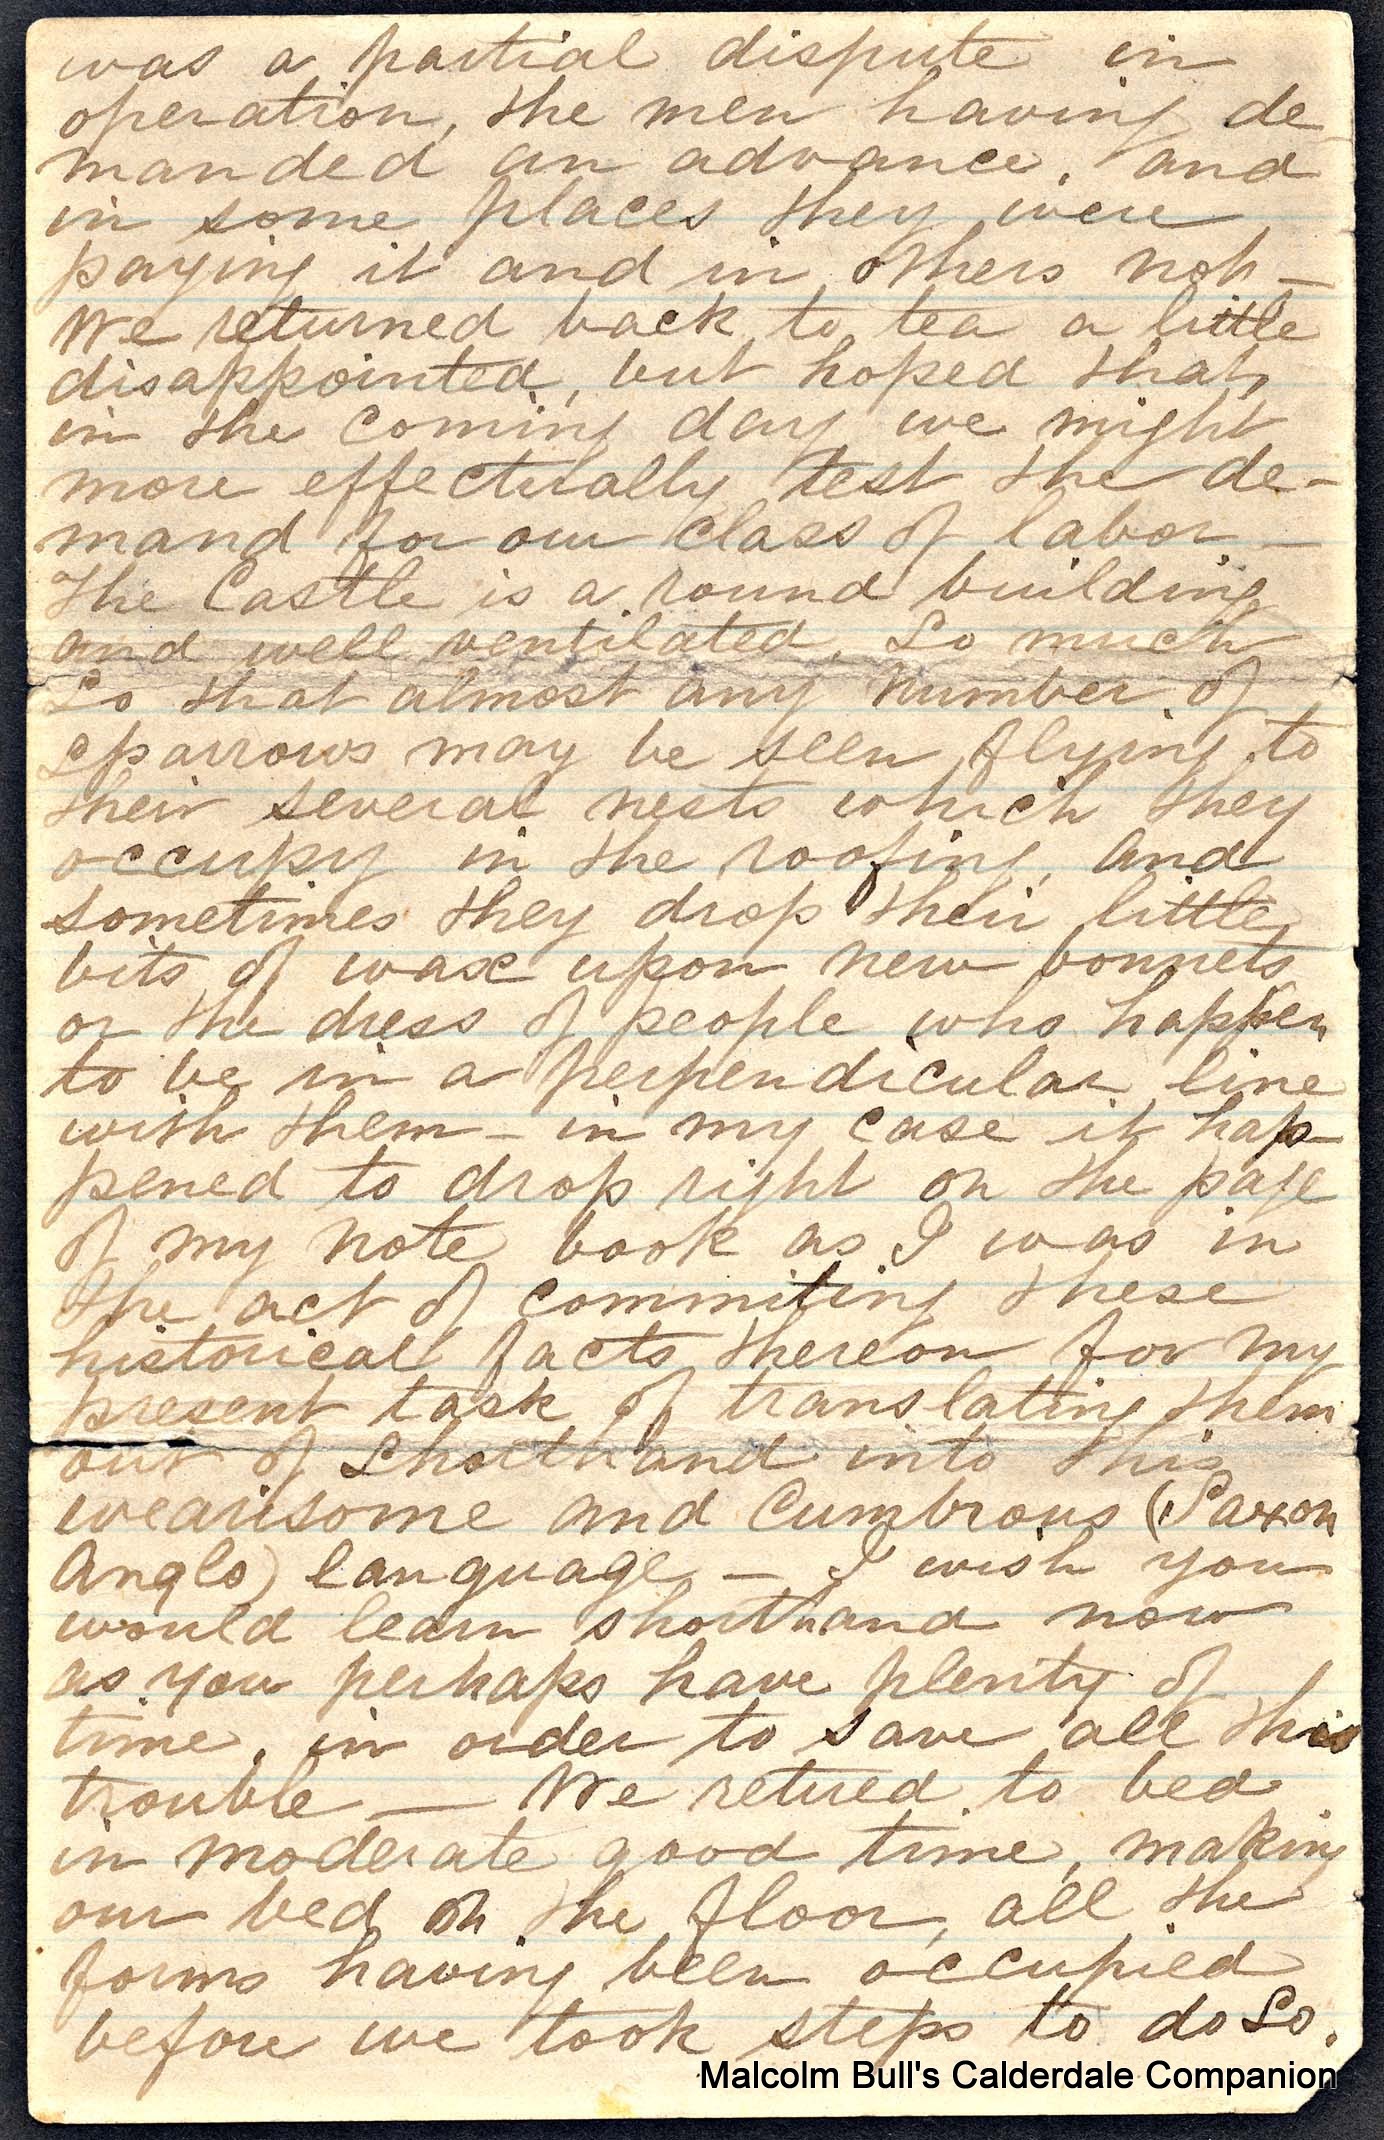 was a partial dispute in
operation, the men having de-
manded an advance, and
in some places they were
paying it and in others not —
We returned back to tea a little
disappointed, but hoped that,
in the coming day we might
more effectually test the de-
mand for our class of labor —
The Castle is a round building
and well ventilated, so much
so that almost any number of
sparrows may be seen flying to
their several nests which they
occupy in the roofing, and
sometimes they drop their little
bits of wax upon new bonnets
or the dress of people who happen
to be in a perpendicular line
with them – in my case it hap-
pened to drop right on the page
of my note book as I was in
the act of commiting these
historical facts thereon for my
present task of translating them
out of shorthand into this
wearisome and cumbrous (Saxon
Anglo) language – I wish you
would learn shorthand now
as you perhaps have plenty of
time, in order to save all this
trouble — We retired to bed
in moderate good time, making
our bed on the floor, all the
forms having been occupied
before we took steps to do so.
Malcolm Bull's Calderdale Companion